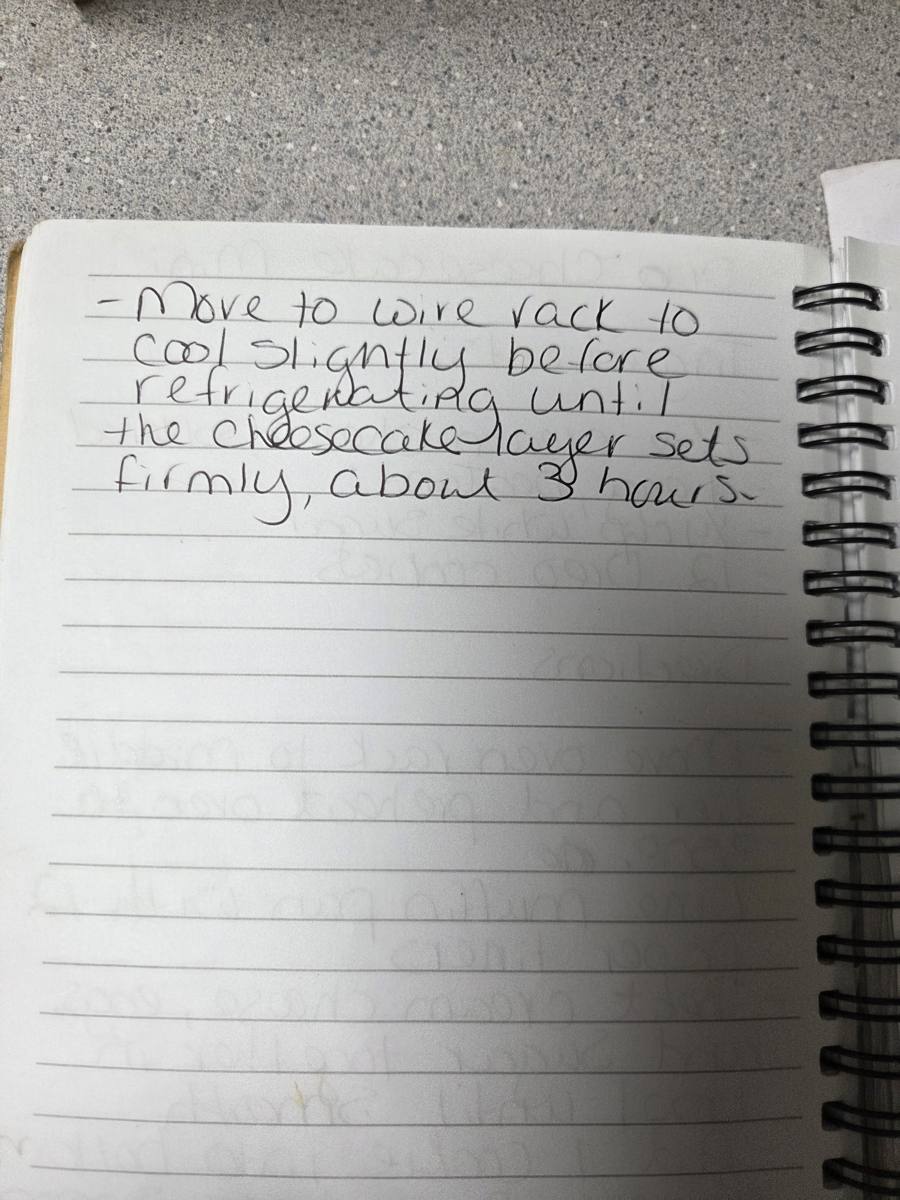 - Move to wire rack to
cool slightly before
refrigerating until
the cheesecake layer sets
firmly, about 3 hours.